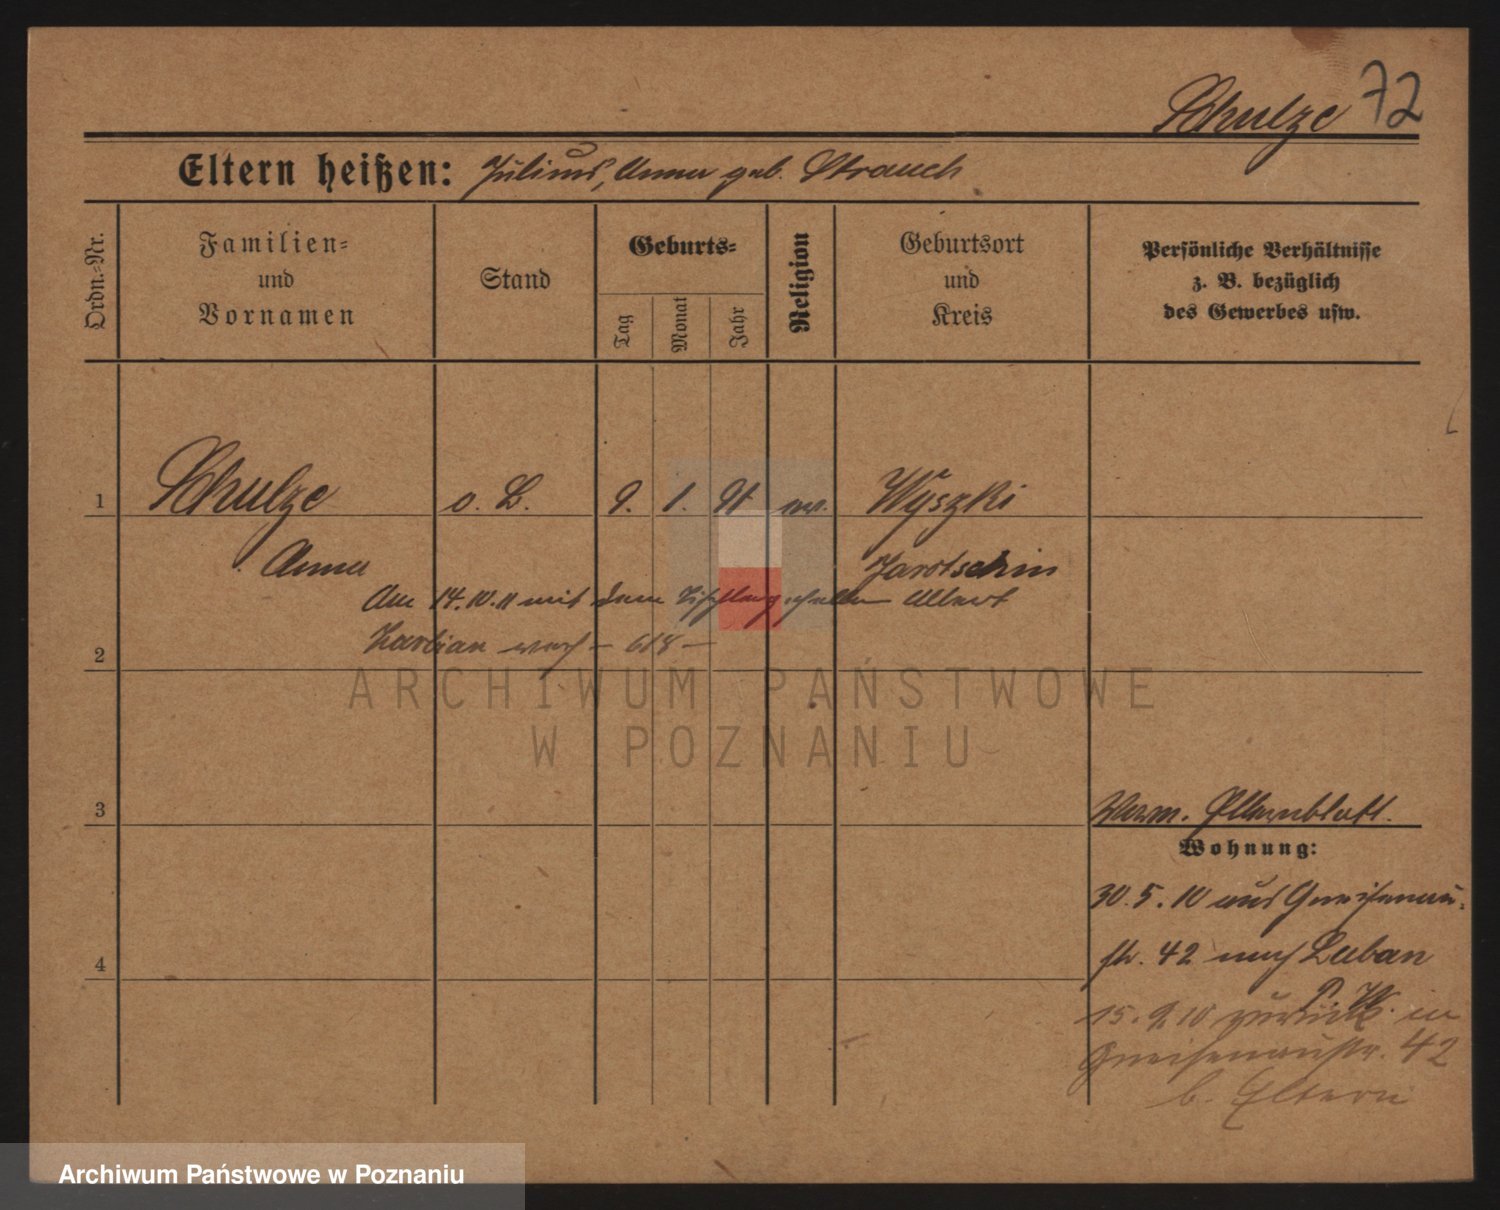 Schulze 72
Eltern heißen: Julius, Anna geb. Strauch
Ordn.-Nr.
Familien-
und
Vornamen
Stand
Geburts-
Tag
Monat
Jahr
Religion
Geburtsort
und
Kreis
Persönliche Verhältnisse
z. B. bezüglich
des Gewerbes usw.
1 Schulze o. B. 9. 1. 91 ev. Wyszki
Anna Jarotschin
Am 14.10.11 mit dem Tischlergesellen Albert
2 verh – 618 –
ARCHIWUM PAŃSTWOWE
W POZNANIU
3 Elternblatt.
Wohnung:
30.5.10 aus Gneisenau-
4 str. 42 nach Luban
P. W.
15.9.10 zurück in
Gneisenaustr. 42
b. Eltern
Archiwum Państwowe w Poznaniu